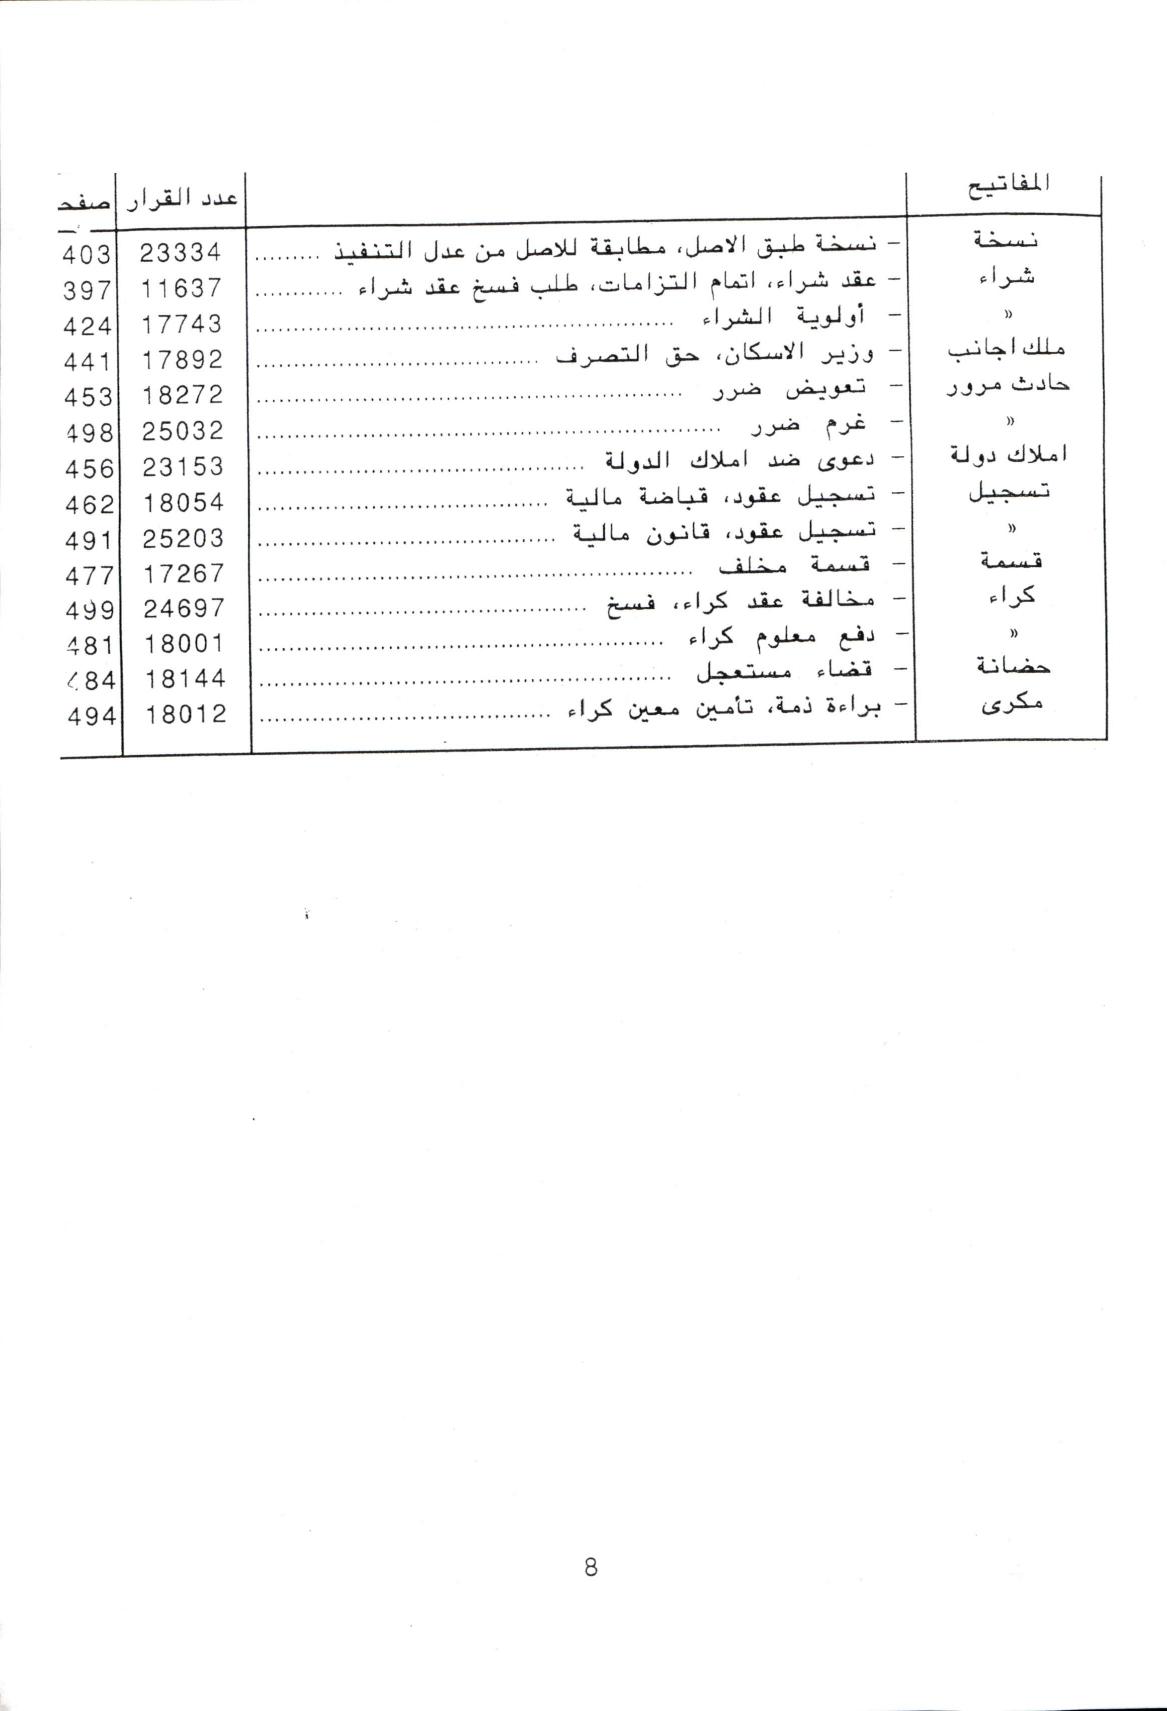 المفاتيح عدد القرار صفحـ
نسخة – نسخة طبق الاصل، مطابقة للاصل من عدل التنفيذ ......... 23334 403
شراء – عقد شراء، اتمام التزامات، طلب فسخ عقد شراء ............ 11637 397
» – أولوية الشراء ............ 17743 424
ملك اجانب – وزير الاسكان، حق التصرف ............ 17892 441
حادث مرور – تعويض ضرر ............ 18272 453
» – غرم ضرر ............ 25032 498
املاك دولة – دعوى ضد املاك الدولة ............ 23153 456
تسجيل – تسجيل عقود، قباضة مالية ............ 18054 462
» – تسجيل عقود، قانون مالية ............ 25203 491
قسمة – قسمة مخلف ............ 17267 477
كراء – مخالفة عقد كراء، فسخ ............ 24697 499
» – دفع معلوم كراء ............ 18001 481
حضانة – قضاء مستعجل ............ 18144 484
مكرى – براءة ذمة، تأمين معين كراء ............ 18012 494
8